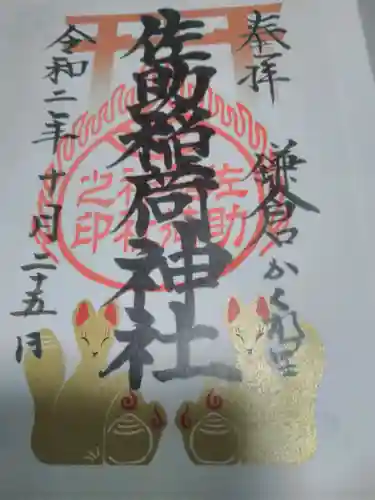 奉拝
鎌倉かくれ里
佐助稲荷神社
令和二年十月二十五日
佐助稲荷神社之印